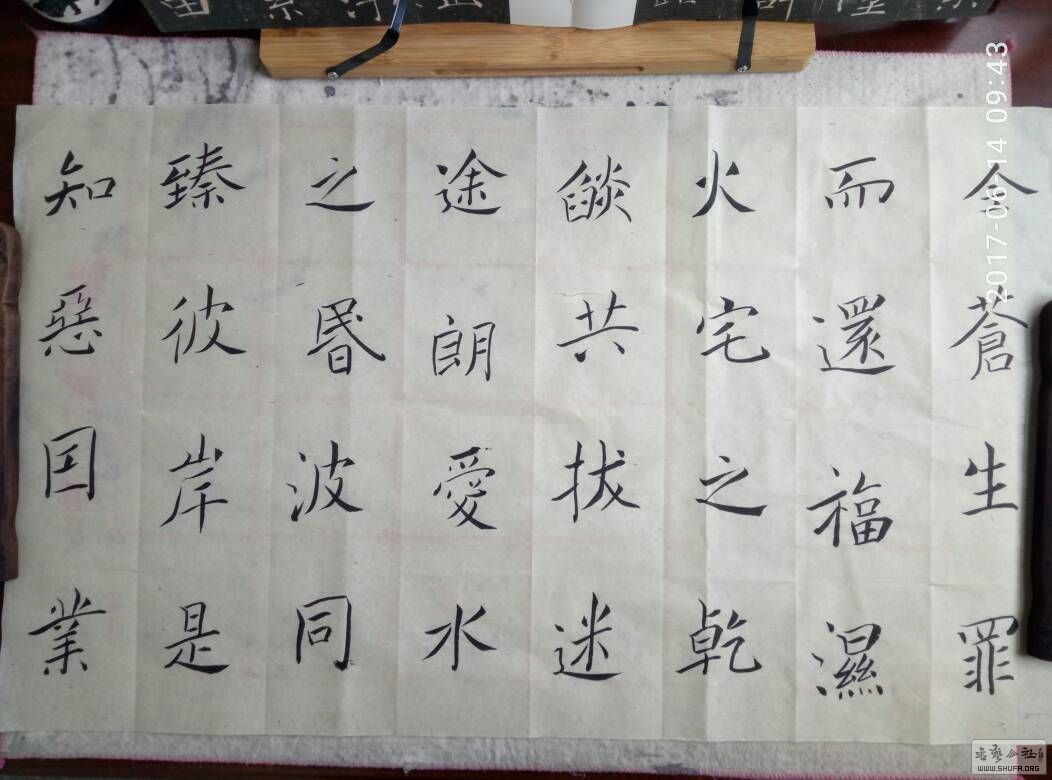 令蒼生罪
而還福濕
火宅之乾
燄共拔迷
途朗愛水
之昬波同
臻彼岸是
知惡囙業
2017-06-14 09:43
WWW.SHUFA.ORG